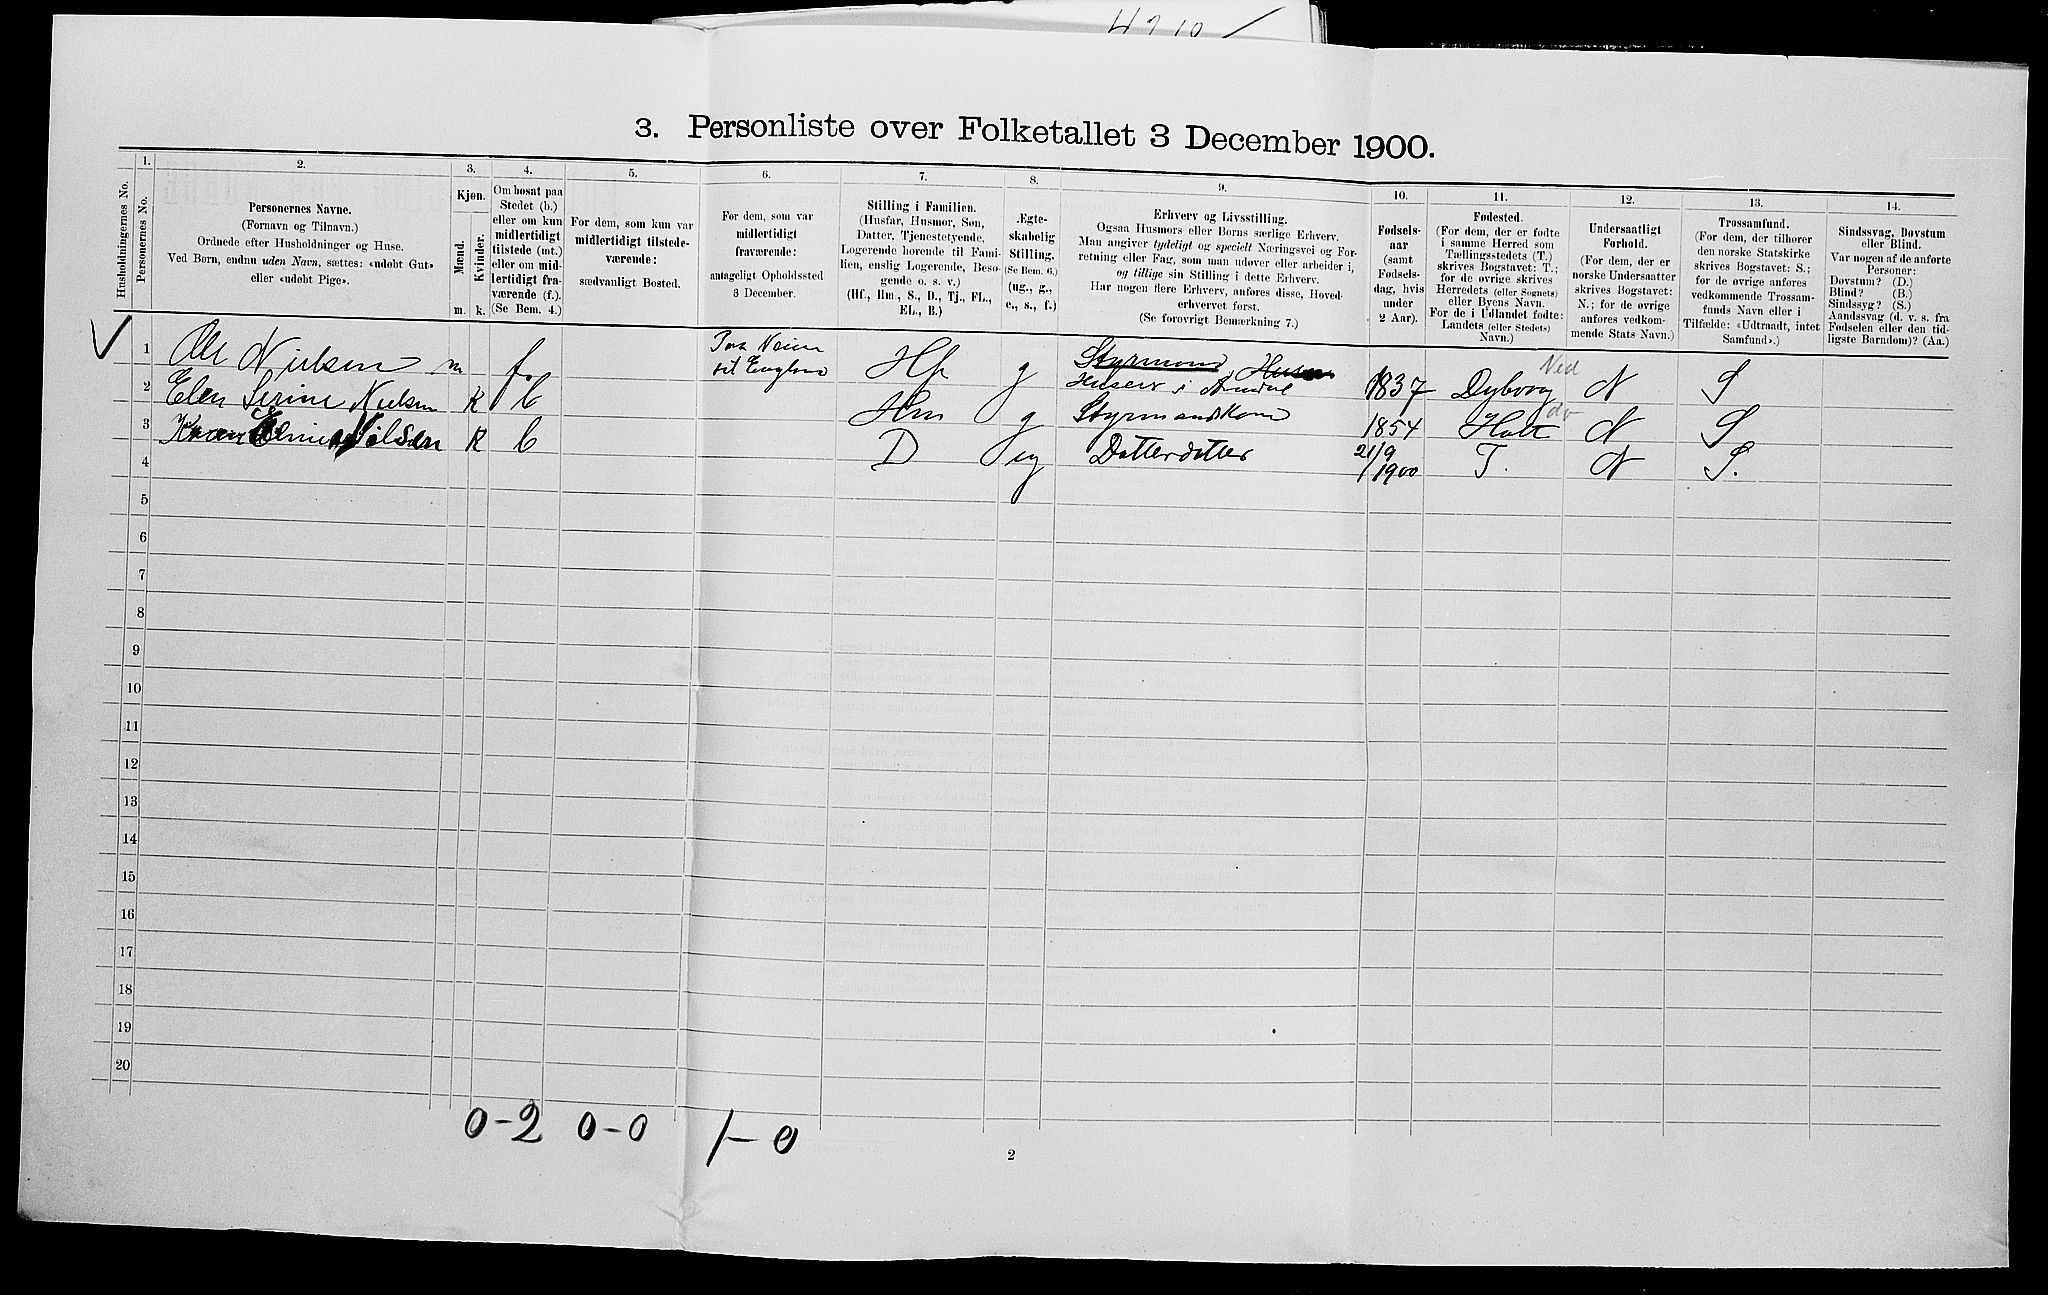 4210
3. Personliste over Folketallet 3 December 1900.
Husholdningernes No.
1.
Personernes No.
2.
Personernes Navne.
(Fornavn og Tilnavn.)
Ordnede efter Husholdninger og Huse.
Ved Børn, endnu uden Navn, sættes: «udøbt Gut»
eller «udøbt Pige».
3.
Kjøn.
Mænd.
Kvinder.
m. k.
4.
Om bosat paa
Stedet (b.)
eller om kun
midlertidigt
tilstede (mt.)
eller om mid-
lertidigt fra-
værende (f.).
(Se Bem. 4.)
5.
For dem, som kun var
midlertidigt tilstede-
værende:
sædvanligt Bosted.
6.
For dem, som var
midlertidigt
fraværende:
antageligt Opholdssted
3 December.
7.
Stilling i Familien.
(Husfar, Husmor, Søn,
Datter, Tjenestetyende,
Logerende hørende til Fami-
lien, enslig Logerende, Besø-
gende o. s. v.)
(Hf., Hm., S., D., Tj., FL.,
EL., B.)
8.
Ægte-
skabelig
Stilling.
(Se Bem. 6.)
(ug., g.,
e., s., f.)
9.
Erhverv og Livsstilling.
Ogsaa Husmors eller Børns særlige Erhverv.
Man angiver tydeligt og specielt Næringsvei og For-
retning eller Fag, som man udøver eller arbeider i,
og tillige sin Stilling i dette Erhverv.
Har nogen flere Erhverv, anføres disse, Hoved-
erhvervet først.
(Se forøvrigt Bemærkning 7.)
10.
Fødsels-
aar
(samt
Fødsels-
dag, hvis
under
2 Aar).
11.
Fødested.
(For dem, der er fødte
i samme Herred som
Tællingsstedets (T.)
skrives Bogstavet: T.;
for de øvrige skrives
Herredets (eller Sognets)
eller Byens Navn.
For de i Udlandet fødte:
Landets (eller Stedets)
Navn.)
12.
Undersaatligt
Forhold.
(For dem, der er
norske Undersaatter
skrives Bogstavet:
N.; for de øvrige
anføres vedkom-
mende Stats Navn.)
13.
Trossamfund.
(For dem, der tilhører
den norske Statskirke
skrives Bogstavet: S.;
for de øvrige anføres
vedkommende Trossam-
funds Navn eller i
Tilfælde: «Udtraadt, intet
Samfund».)
14.
Sindssvag, Døvstum
eller Blind.
Var nogen af de anførte
Personer:
Døvstum? (D.)
Blind? (B.)
Sindssyg? (S.)
Aandssvag (d. v. s. fra
Fødselen eller den tid-
ligste Barndom)? (Aa.)
1 Ole Nielsen m f. Paa Reise til England Hf g Styrmand, Huseier i Arendal 1837 Dybvog Ned N S
2 Elen Serine Nielsen K b Hm g Styrmandskone 1854 Holt do N S
3 Nilsen K b D ug Datterdatter 21/9 1900 T. N S.
4
5
6
7
8
9
10
11
12
13
14
15
16
17
18
19
20
0-2 0-0 1-0
2